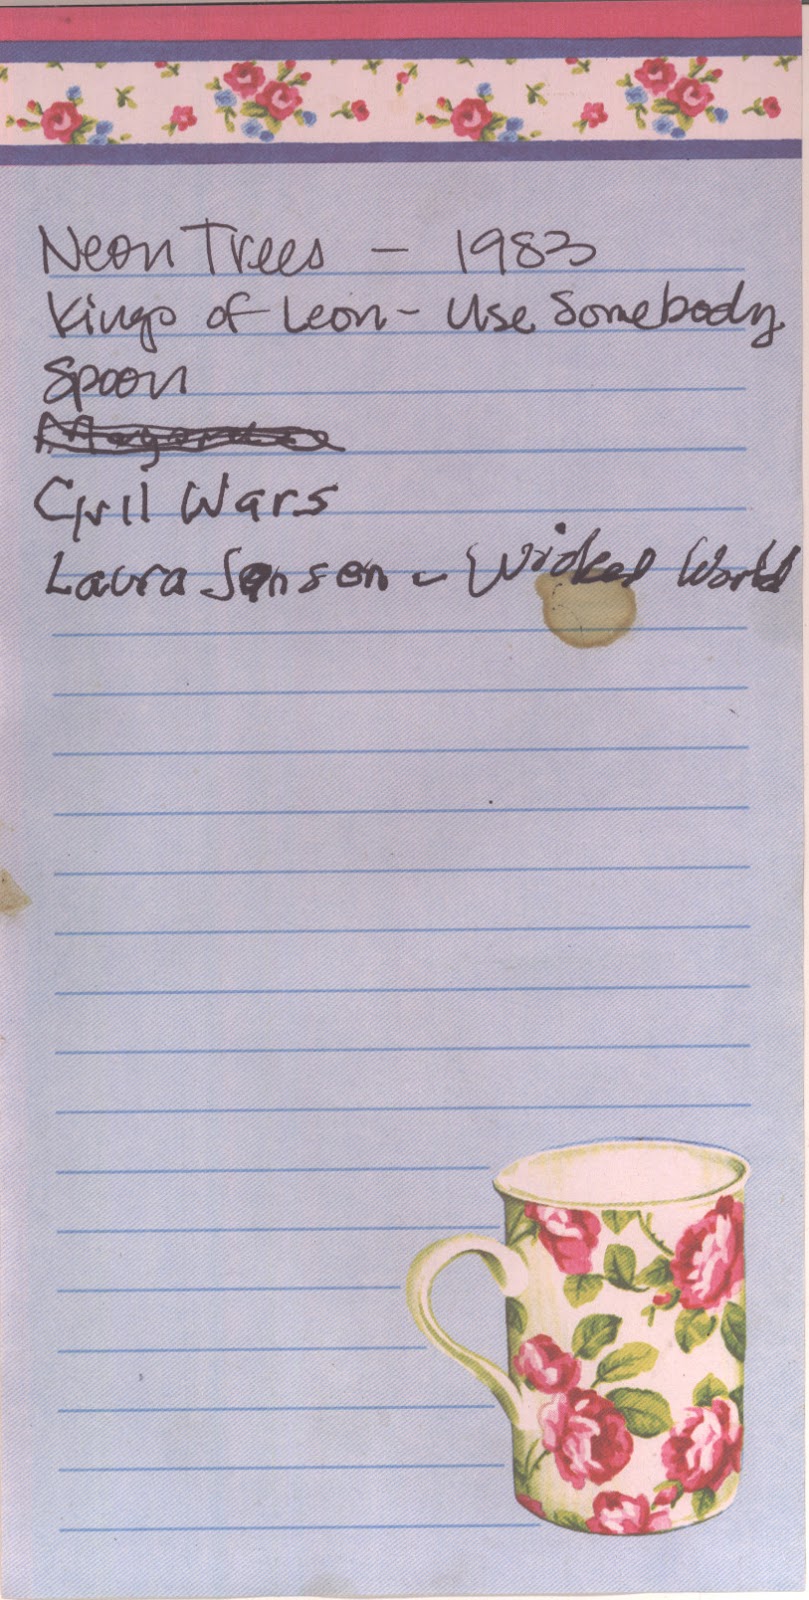 Neon Trees - 1983
Kings of Leon - Use Somebody
Spoon
Civil Wars
Laura Jansen - Wicked World